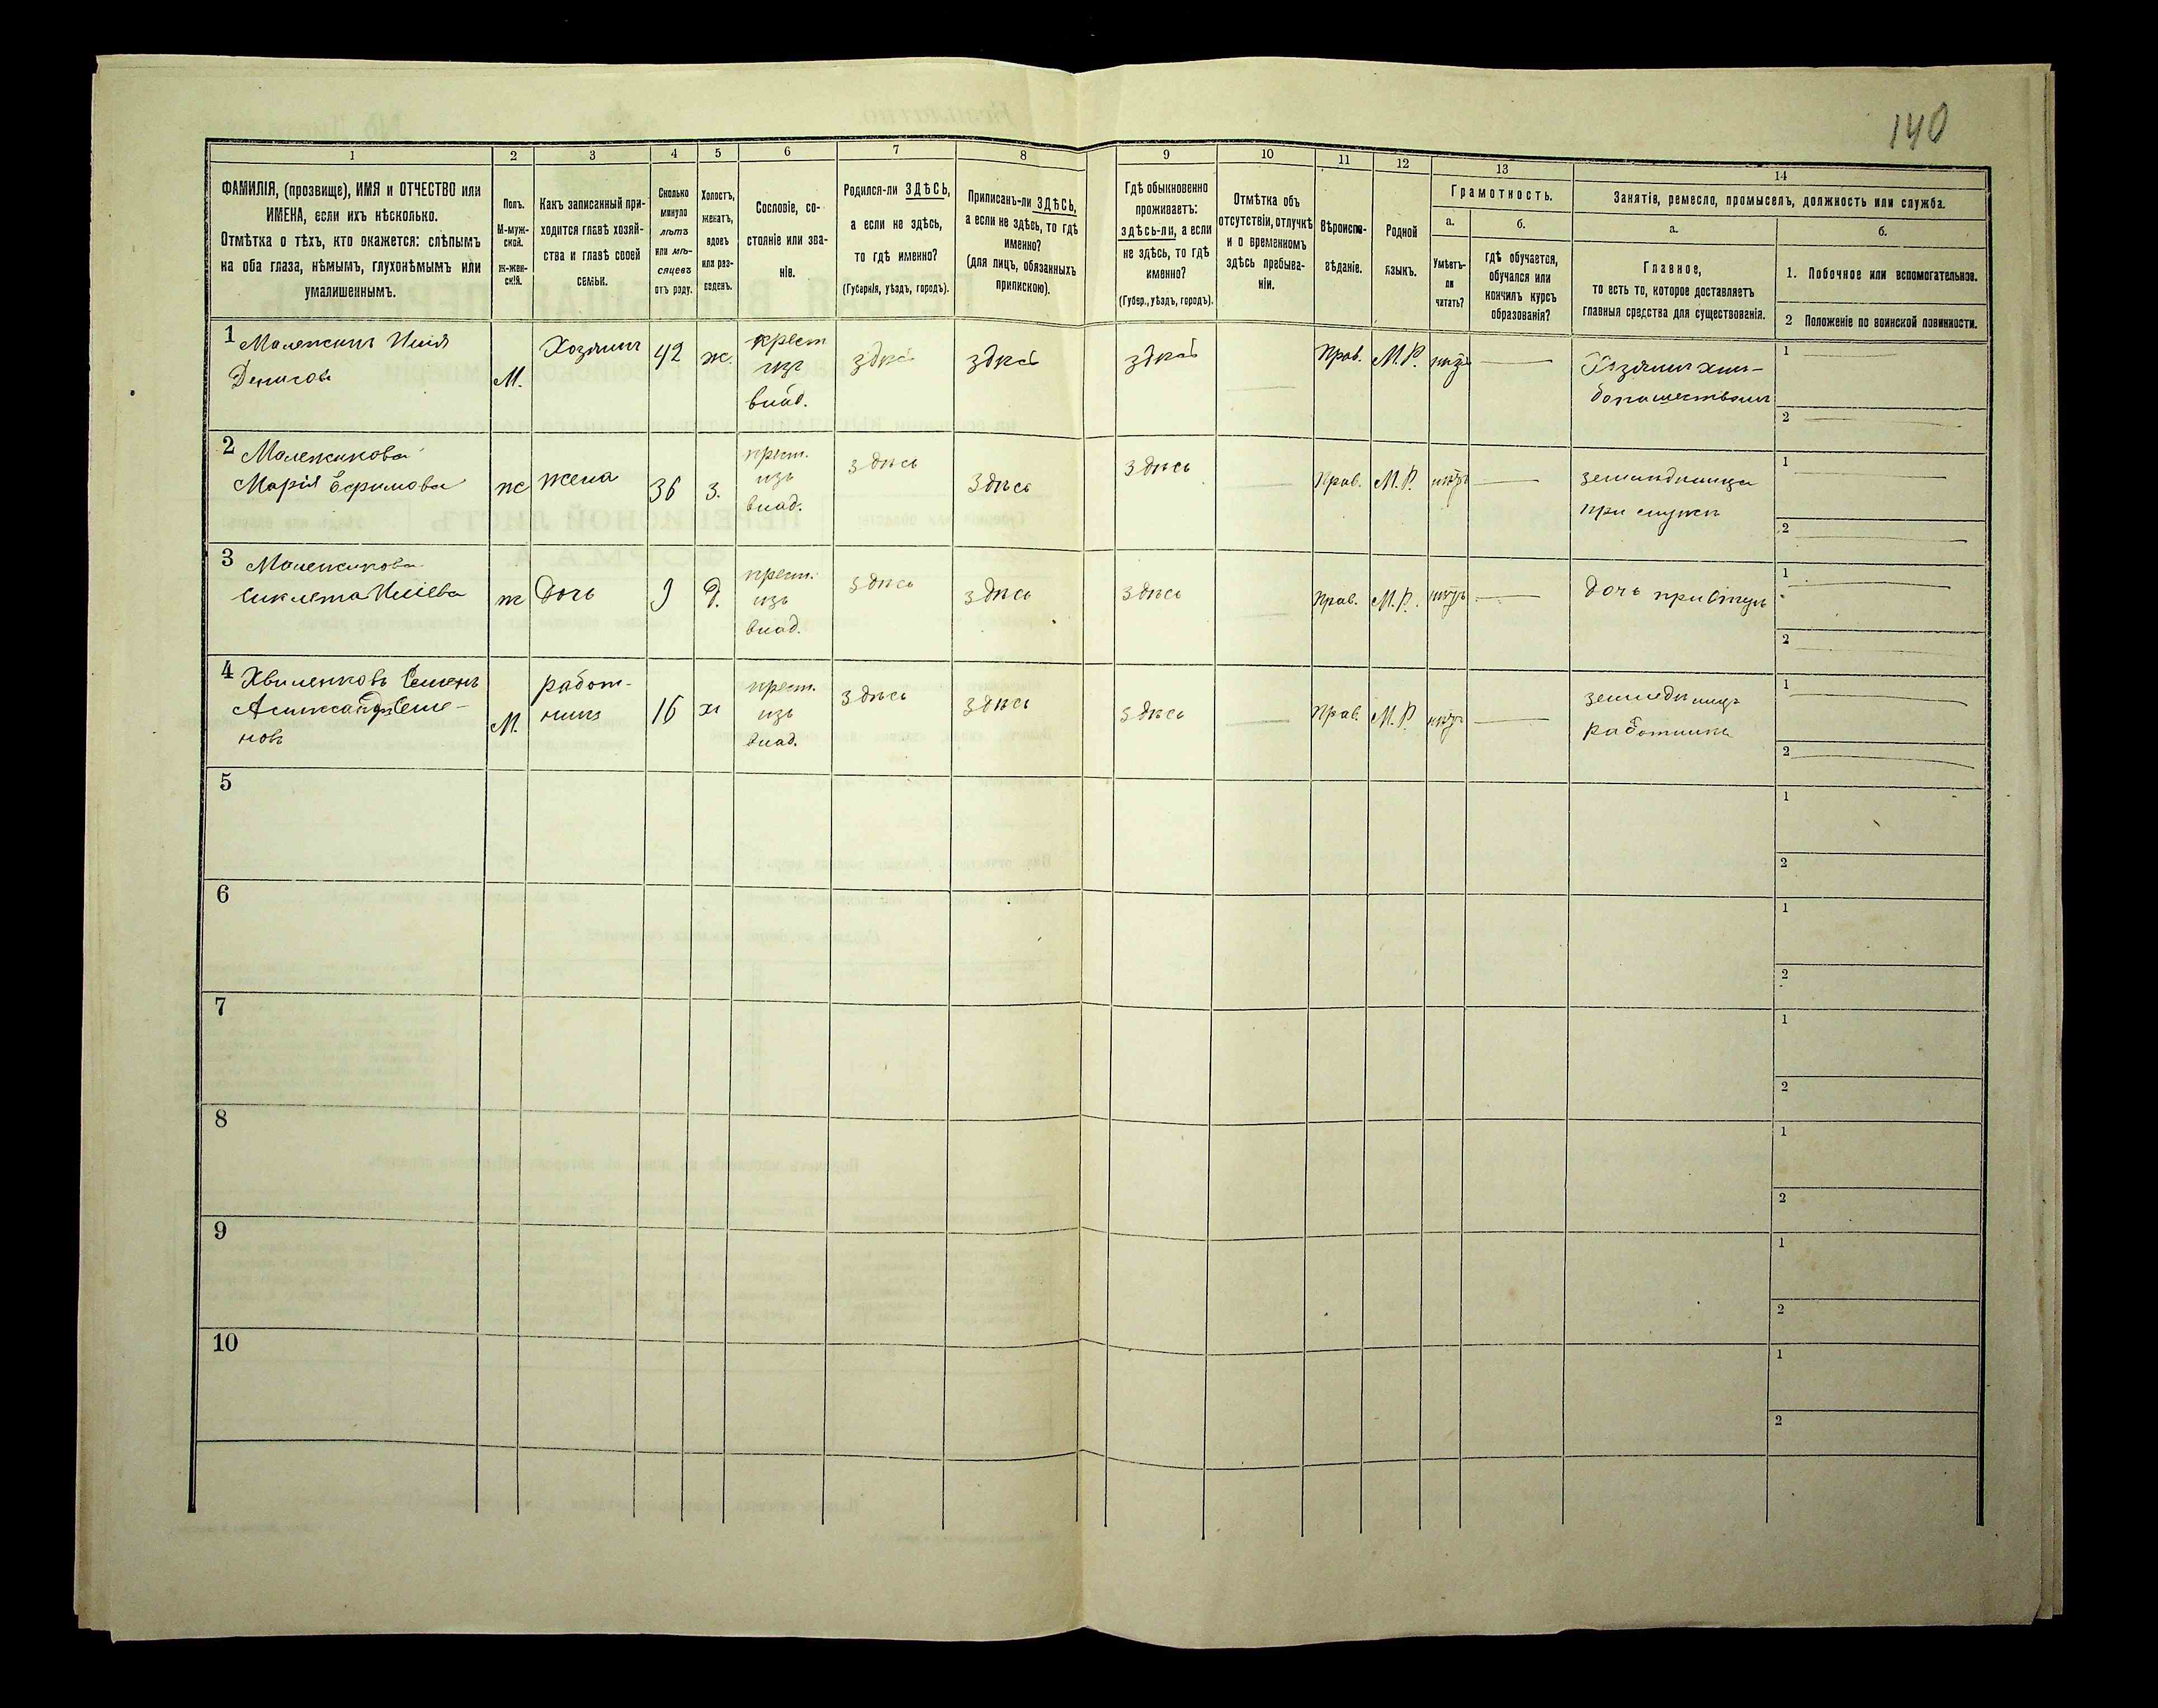 140
1 2 3 4 5 6 7 8 9 10 11 12 13 14
ФАМИЛІЯ, (прозвище), ИМЯ и ОТЧЕСТВО или
ИМЕНА, если ихъ нѣсколько.
Отмѣтка о тѣхъ, кто окажется: слѣпымъ
на оба глаза, нѣмымъ, глухонѣмымъ или
умалишеннымъ.
Полъ.
М-муж-
ской.
Ж-жен-
скій.
Какъ записанный при-
ходится главѣ хозяй-
ства и главѣ своей
семьи.
Сколько
минуло
лѣтъ
или мѣ-
сяцевъ
отъ роду.
Холостъ,
женатъ,
вдовъ
или раз-
веденъ.
Сословіе, со-
стояніе или зва-
ніе.
Родился-ли ЗДѢСЬ,
а если не здѣсь,
то гдѣ именно?
(Губернія, уѣздъ, городъ).
Приписанъ-ли ЗДѢСЬ,
а если не здѣсь, то гдѣ
именно?
(для лицъ, обязанныхъ
припискою).
Гдѣ обыкновенно
проживаетъ:
здѣсь-ли, а если
не здѣсь, то гдѣ
именно?
(Губер., уѣздъ, городъ).
Отмѣтка объ
отсутствіи, отлучкѣ
и о временномъ
здѣсь пребыва-
ніи.
Вѣроиспо-
вѣданіе.
Родной
языкъ.
Грамотность.
а.
Умѣетъ-
ли
читать?
б.
гдѣ обучается,
обучался или
кончилъ курсъ
образованія?
Занятія, ремесло, промыселъ, должность или служба.
а.
Главное,
то есть то, которое доставляетъ
главныя средства для существованія.
б.
1. Побочное или вспомогательное.
2 Положеніе по воинской повинности.
1 Денисовъ
М.
Хозяинъ
42
ж.
крест
изъ
влад.
здѣсь
здѣсь
здѣсь
Прав.
М.Р.
нѣтъ
Хозяинъ
1
2
2 Малежикова
Марія Ефимова
ж
жена
36
з.
крест.
изъ
влад.
здѣсь
здѣсь
здѣсь
Прав.
М.Р.
нѣтъ
при мужѣ
1
2
3 Малежикова
ж
Дочь
9
д.
крест.
изъ
влад.
здѣсь
здѣсь
здѣсь
Прав.
М.Р.
нѣтъ
дочь при отцѣ
1
2
4 Хвиленковъ Семенъ
М.
работ-
никъ
16
х
крест.
изъ
влад.
здѣсь
здѣсь
здѣсь
Прав.
М.Р.
нѣтъ
работникъ
1
2
5
1
2
6
1
2
7
1
2
8
1
2
9
1
2
10
1
2